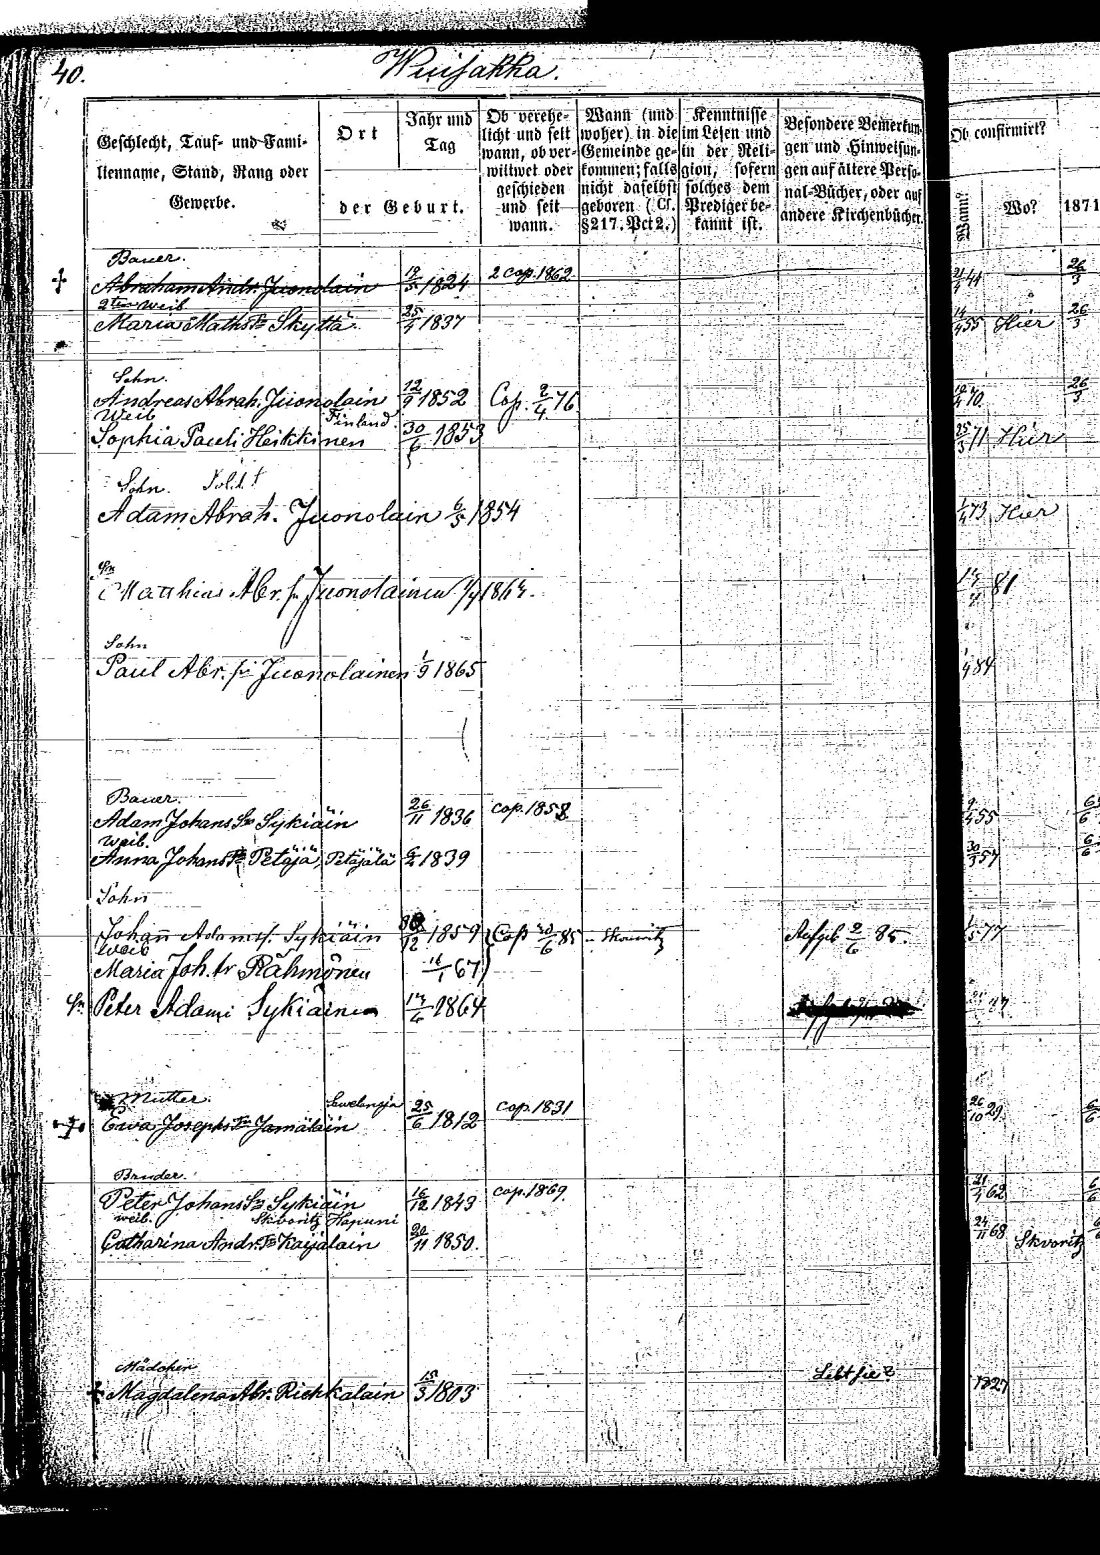 40.
Wuisakka.
Geschlecht, Tauf- und Fami-
lienname, Stand, Rang oder
Gewerbe.
Ort
Jahr und
Tag
der Geburt.
Ob verehe-
licht und seit
wann, ob ver-
wittwet oder
geschieden
und seit
wann.
Wann (und
woher) in die
Gemeinde ge-
kommen; falls
nicht daselbst
geboren (Cf.
§217. Pct 2.)
Kenntnisse
im Lesen und
in der Reli-
gion, sofern
solches dem
Prediger be-
kannt ist.
Besondere Bemerkun-
gen und Hinweisun-
gen auf ältere Perso-
nal-Bücher, oder auf
andere Kirchenbücher.
Ob confirmirt?
Wann?
Wo?
1871
Bauer.
Abraham Andr. Juonolain 1824 2 cop. 1862. 26/3
2tes Weib
Maria Maths Skyttä 25/4 1837 14/4 55 Hier 26/3
Sohn.
Andreas Abrah. Juonolain 12/9 1852 Cop. 2/4 76 26/3
Weib Finland.
Sophia Pauli Heikkinen 30/6 1853 25/3 71 Hier
Sohn.
Adam Abrah. Juonolain 6/5 1854 1/4 73 Hier
Matthias Abr. Juonolainen 81
Sohn
Paul Abr. Juonolainen 1/9 1865 84
Bauer.
Adam Johans Sykiäin 26/11 1836 cop. 1858 55
Weib.
Anna Johans Petäjä Petäjälä 6/2 1839 30/3 57
Sohn
Johan Adams. Sykiäin 1859 Cop 85 Skworitz 2/6 85.
Weib
Maria Joh. tr Rähmönen 16/1 67
Peter Adami Sykiäinen 1864
Mutter.
Ewa Josephs Jamäläin 25/6 1812 cop. 1831 26/10 29.
Bruder.
Peter Johans Sykiäin 16/12 1843 cop. 1869. 21/4 62
Weib. Skvoritz Hapuni
Catharina Andr. Kaijalain 20/11 1850. 24/11 68 Skvoritz
Mädchen
Magdalena Abr. Riekkalain 15/3 1803 Lebt sie? 1827